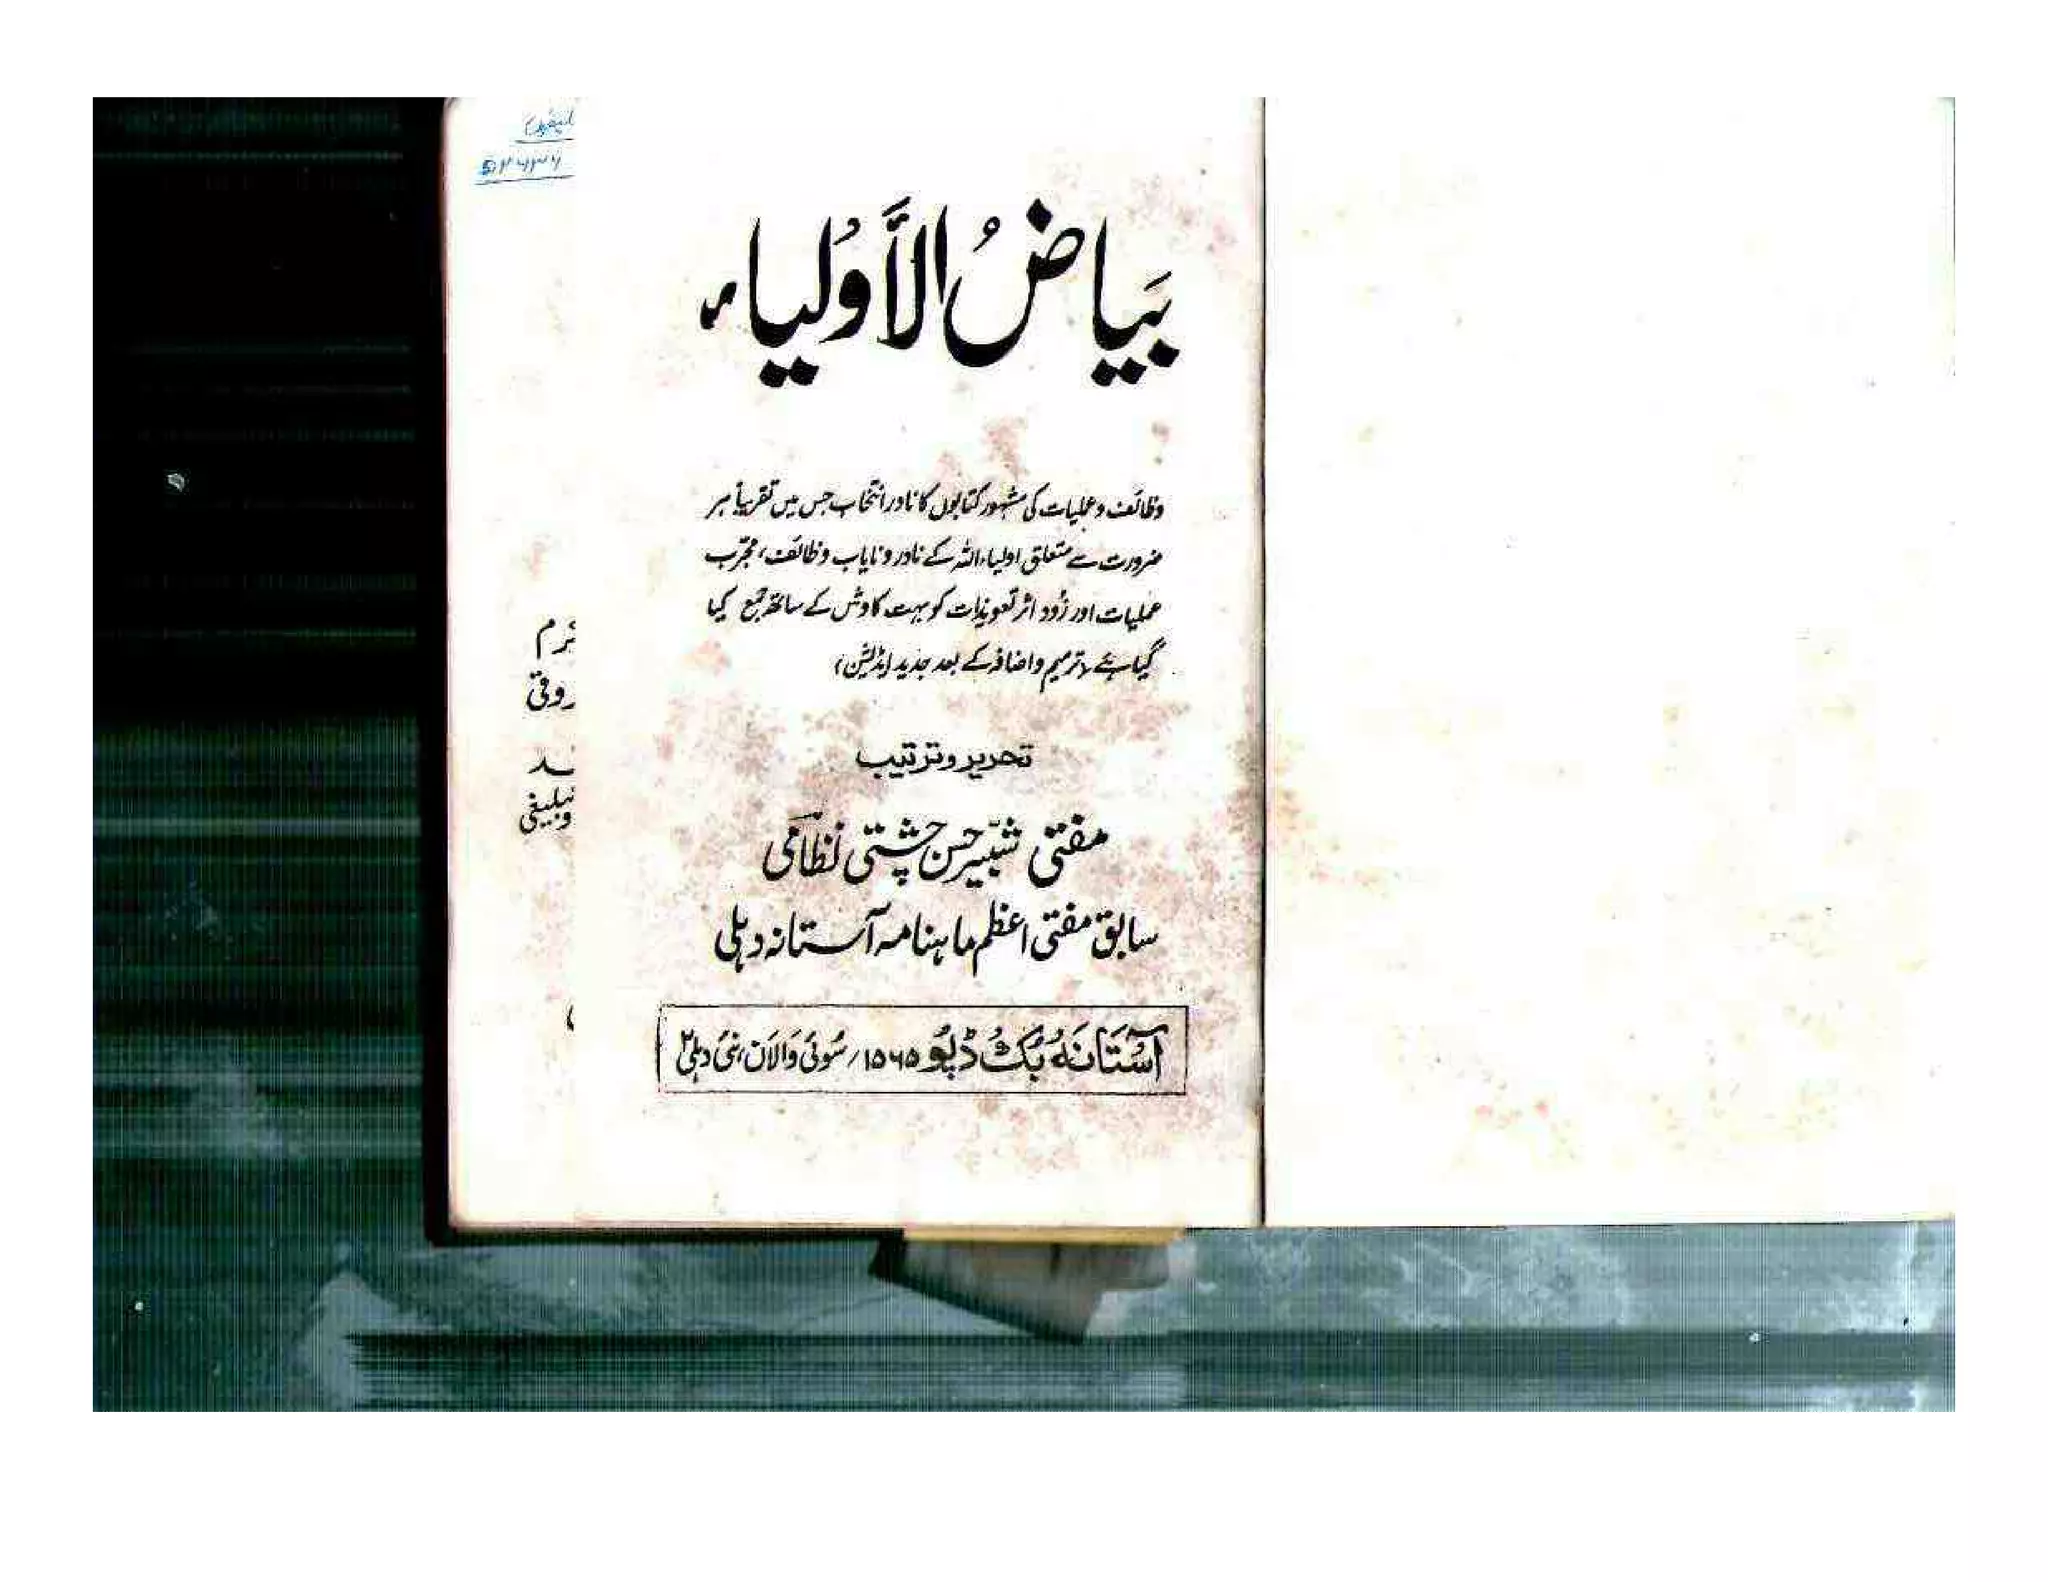 بَیاضُ الأَوْلیاء
وظائف وعملیات کی مشہور کتابوں کا نادر انتخاب جس میں تقریباً ہر
ضرورت سے متعلق اولیاء اللہ کے نادر و نایاب وظائف، مجرّب
عملیات اور زُود اثر تعویذات کو بہت کاوش کے ساتھ جمع کیا
گیا ہے (ترمیم و اضافہ کے بعد جدید ایڈیشن)
تحریر وترتیب
مفتی شبیر حسن چشتی نظامی
سابق مفتی اعظم ماہنامہ آستانہ دہلی
آستانہ بُک ڈپو ۱۵۶۵/ سُوئی والان، نئی دہلی ۲
ئرم
روقی
ـد
وتبلیغی